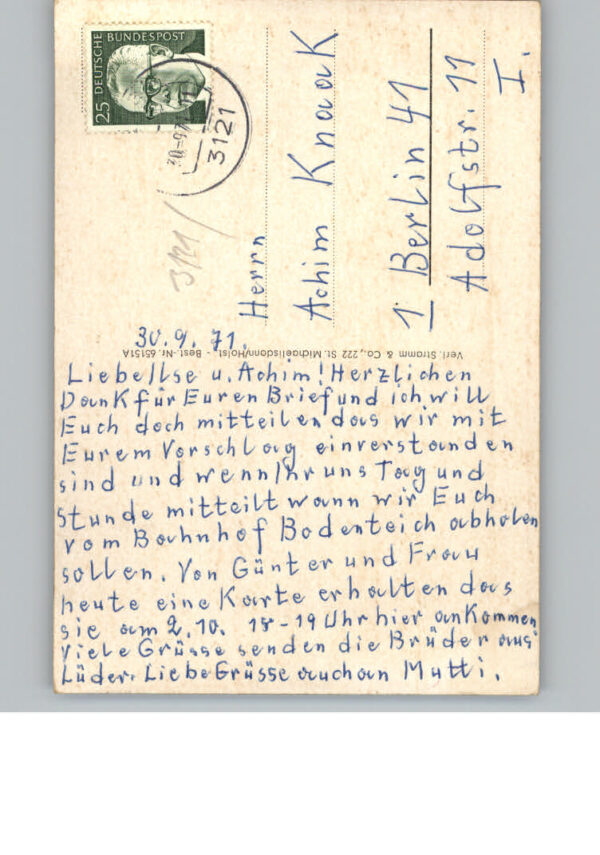 25 DEUTSCHE BUNDESPOST
30.-9.71
3121
3121
Herrn
Achim Knaak
1 Berlin 41
Adolfstr. 11
I.
Verl. Stramm & Co., 222 St. Michaelisdonn/Holst - Best.-Nr. 65151A
30.9.71.
Liebe Ilse u. Achim! Herzlichen
Dank für Euren Brief und ich will
Euch doch mitteilen das wir mit
Eurem Vorschlag einverstanden
sind und wenn Ihr uns Tag und
Stunde mitteilt wann wir Euch
vom Bahnhof Bodenteich abholen
sollen. Von Günter und Frau
heute eine Karte erhalten das
sie am 2.10. 18-19 Uhr hier ankommen
Viele Grüsse senden die Brüder aus
Lüder. Liebe Grüsse auch an Mutti.